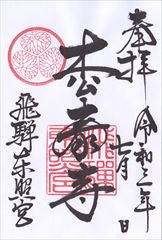 奉拝
令和二年
七月 日
松泰寺
飛騨東照宮